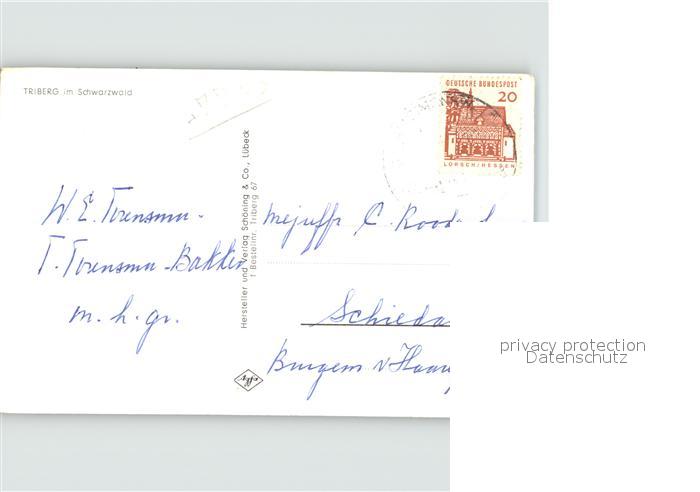 TRIBERG im Schwarzwald
DEUTSCHE BUNDESPOST
20
LORSCH/HESSEN
W. E. Torensma -
T. Torensma-Bakker
m. h. gr.
Hersteller und Verlag Schöning & Co., Lübeck
1 Bestellnr. Triberg 67
Mejuffr C. Rood
Schieda
Burgem v Haa
privacy protection
Datenschutz